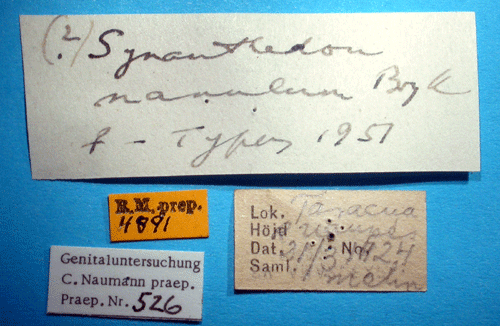 (?) Synanthedon
nanulum Bryk
f - Typus 1951
R.M. prep.
4891
Lok. Taracua
Höjd
Dat. 21/3 No. 1924
Saml. Malin
Genitaluntersuchung
C. Naumann praep.
Praep. Nr. 526